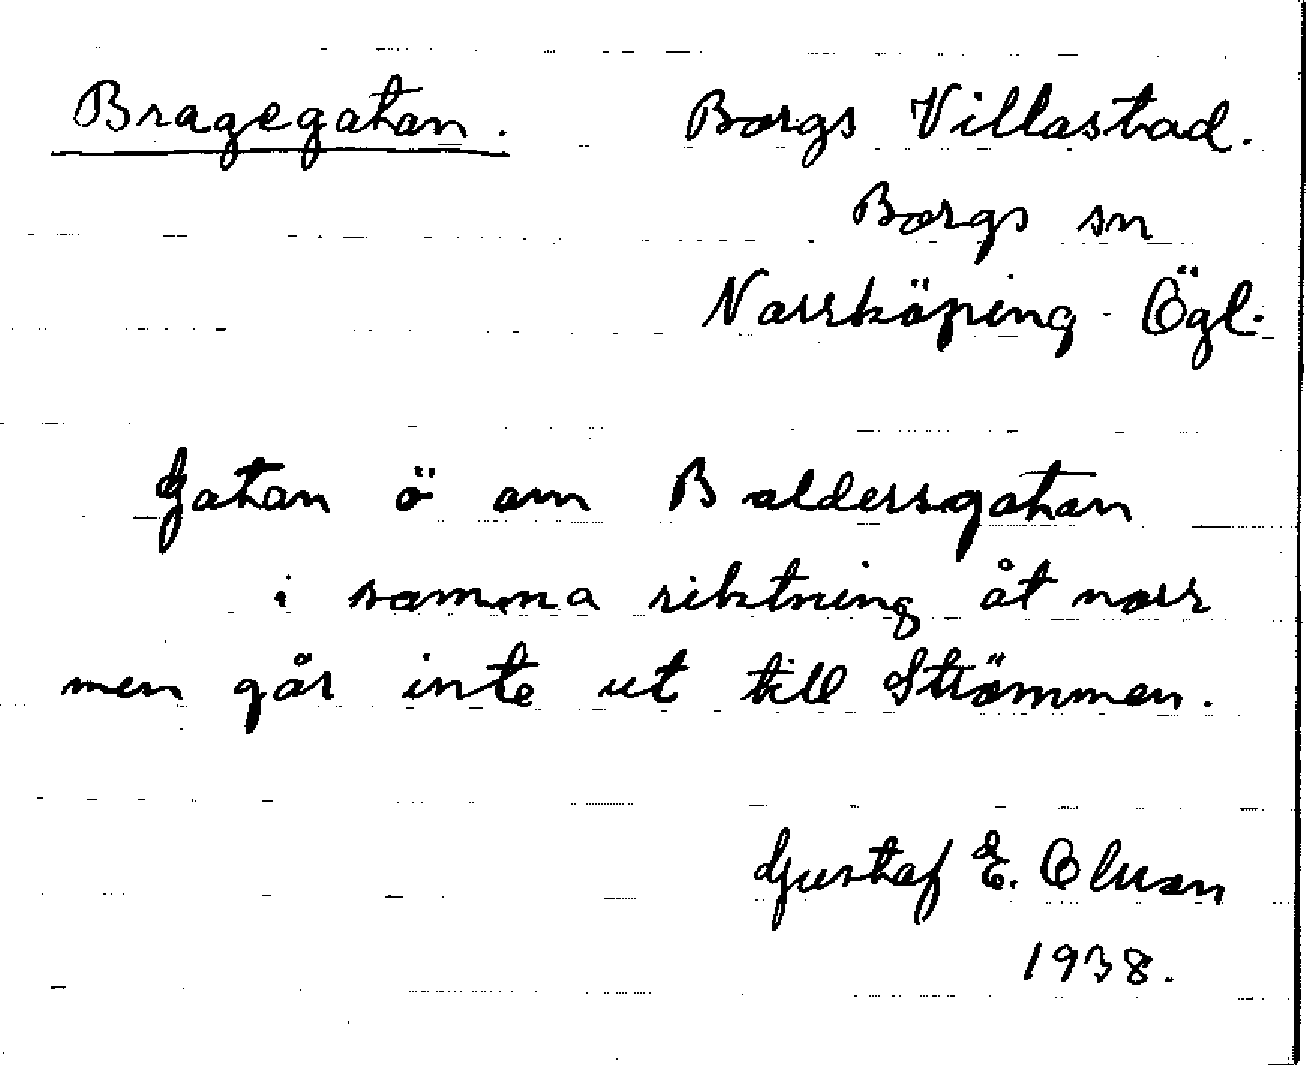 Bragegatan. Borgs Villastad.
Borgs sn
Norrköping Ögl.
Gatan ö om Baldersgatan
i samma riktning åt norr
men går inte ut till Strömmen.
Gustaf E. Olsson
1938.